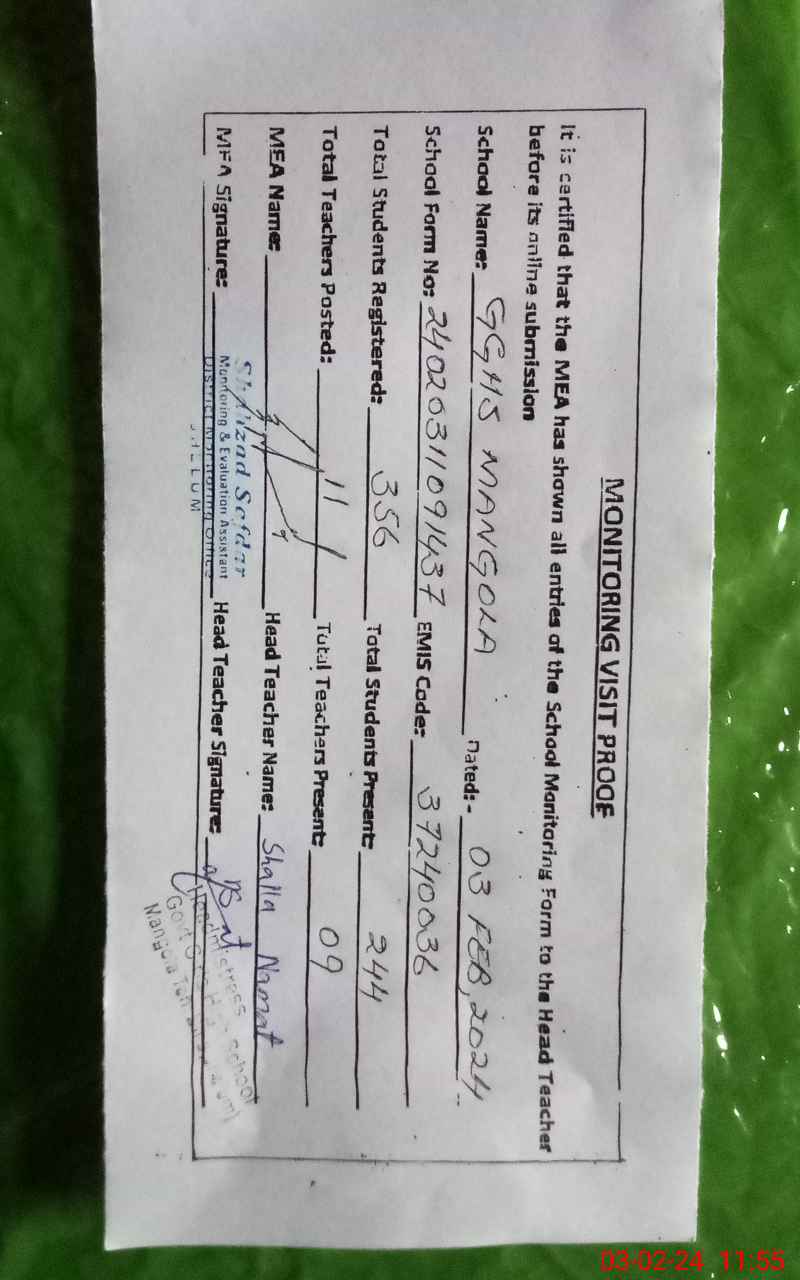 MONITORING VISIT PROOF
It is certified that the MEA has shown all entries of the School Monitoring Form to the Head Teacher
before its online submission
School Name: GGHS MANGOLA Dated:- 03 FEB, 2024
School Form No: 24020311091437 EMIS Code: 37240036
Total Students Registered: 356 Total Students Present: 244
Total Teachers Posted: 11 Total Teachers Present: 09
MEA Name: Head Teacher Name: Shaila Namat
MEA Signature: Head Teacher Signature:
Shahzad Safdar
Monitoring & Evaluation Assistant
District Monitoring Office
JHELUM
Headmistress
Govt School
Mangola
03-02-24 11:55